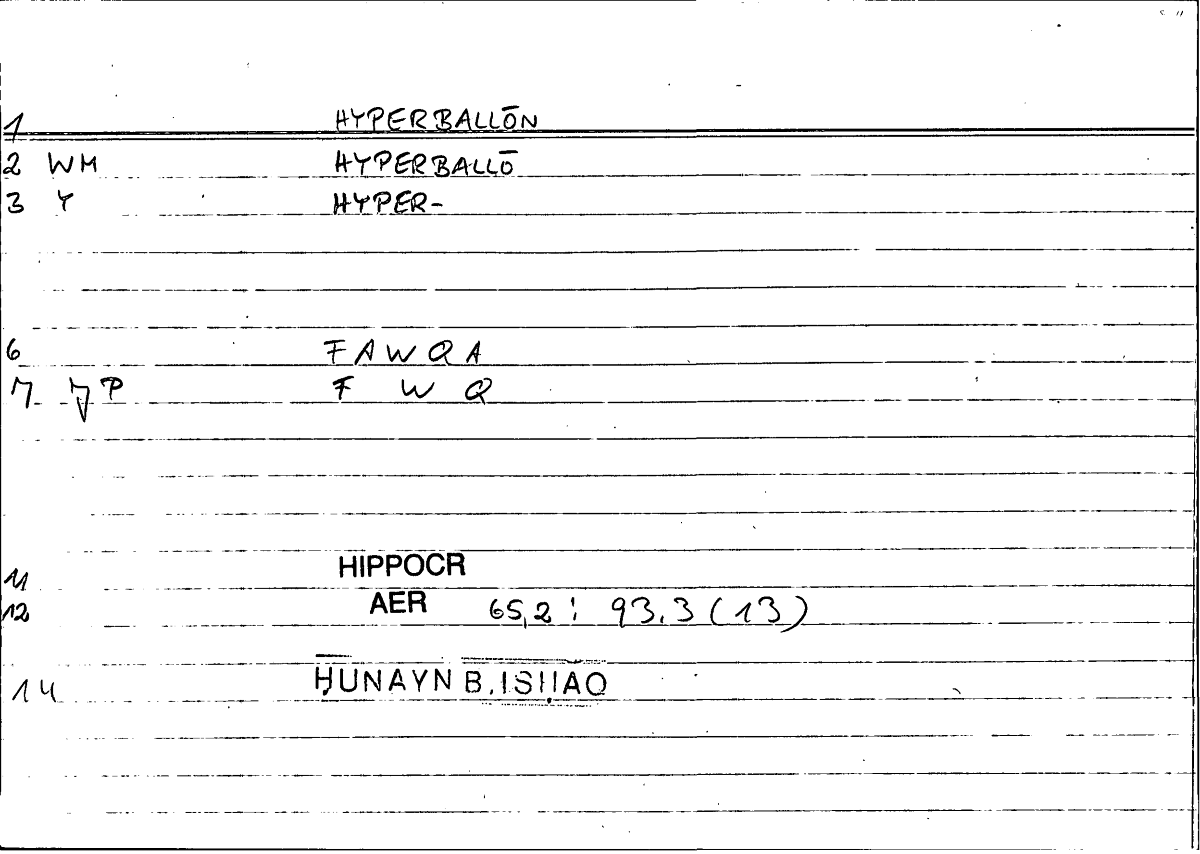 1 HYPERBALLŌN
2 WM HYPERBALLŌ
3 Y HYPER-
6 FAWQA
7 JP F W Q
11 HIPPOCR
12 AER 65,2 : 93.3 (13)
14 ḤUNAYN B. ISḤAQ